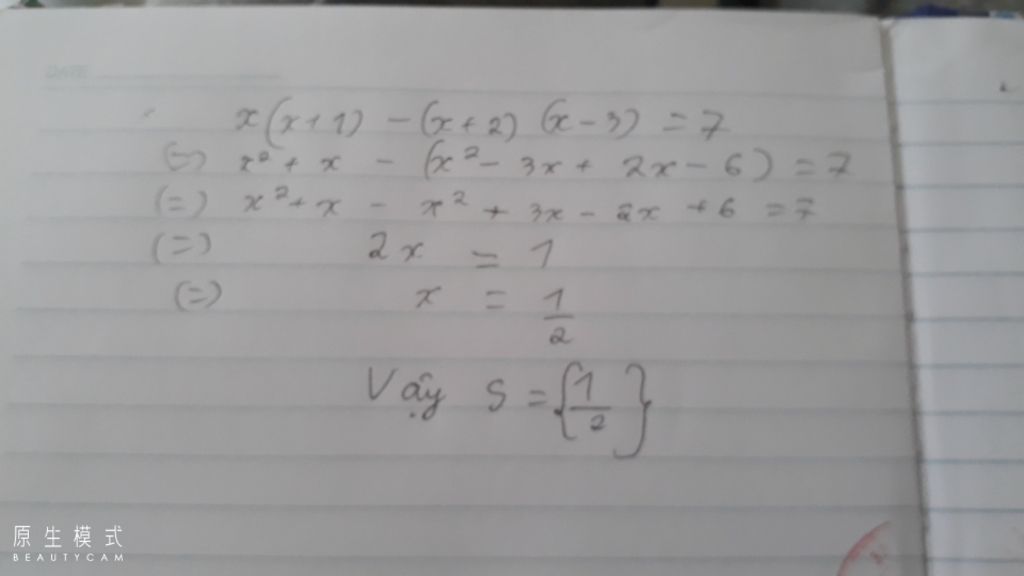 DATE
x(x+1) - (x+2) (x-3) = 7
(=) x² + x - (x² - 3x + 2x - 6) = 7
(=) x² + x - x² + 3x - 2x + 6 = 7
(=) 2x = 1
(=) x = 1/2
Vậy S = {1/2}
原生模式
BEAUTYCAM